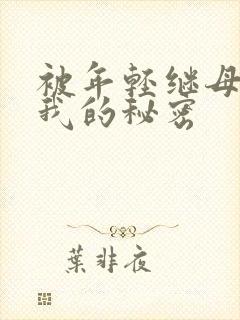 被年轻继母
我的秘密
葉非夜